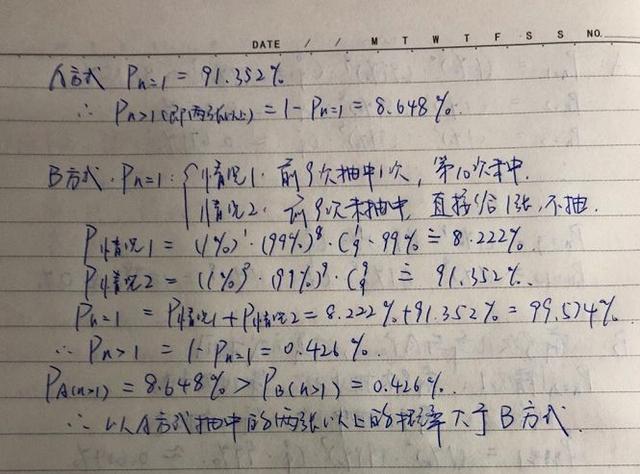 DATE / / M T W T F S S NO.
A方式 Pn=1 = 91.352%
∴ Pn>1(即两张以上) = 1 - Pn=1 = 8.648%.
B方式. Pn=1: { 情况1. 前9次抽中1次, 第10次未中.
情况2. 前9次未抽中, 直接给1张, 不抽.
P情况1 = (1%)¹·(99%)⁸·C₉¹·99% ≐ 8.222%
P情况2 = (1%)⁰·(99%)⁹·C₉⁹ ≐ 91.352%.
Pn=1 = P情况1 + P情况2 = 8.222% + 91.352% = 99.574%
∴ Pn>1 = 1 - Pn=1 = 0.426%.
PA(n>1) = 8.648% > PB(n>1) = 0.426%.
∴ 以A方式抽中的两张以上的概率大于B方式.